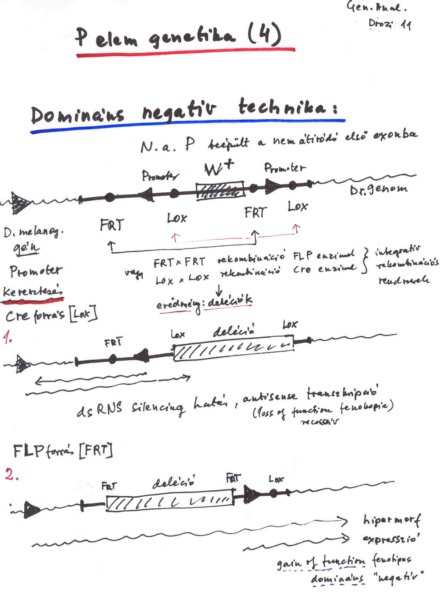 Gen. Anal.
Drozi 11
P elem genetika (4)
Domináns negatív technika:
N.a. P beépült a nem átíródó első exonba
Promoter W+ Promoter
Dr. genom
FRT Lox FRT Lox
D. melanog.
gén
Promoter
vagy FRT x FRT rekombináció FLP enzimel
Lox x Lox rekombináció Cre enzimel
integratív
rekombinációs
rendszerek
Keresztezés
eredmény: deléciók
Cre forrás [Lox]
1.
FRT Lox deléció Lox
dsRNS silencing hatás, antisense transzkripció
(loss of function fenokópia)
recesszív
FLP forrás [FRT]
2.
FRT deléció FRT Lox
hipermorf
expresszió
gain of function fenotípus
domináns "negatív"